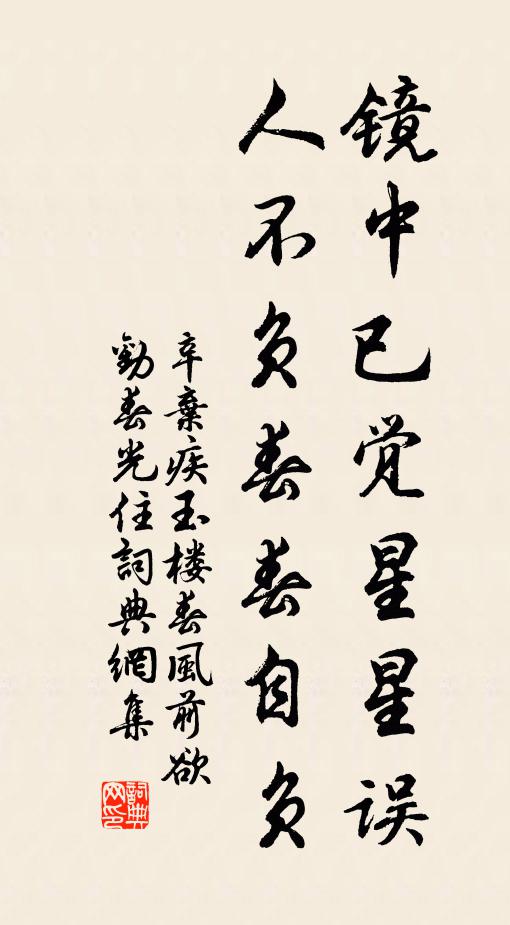 镜中已觉星星误
人不负春春自负
辛棄疾玉楼春風前欲
勸春光住詞典網集
詞典网印